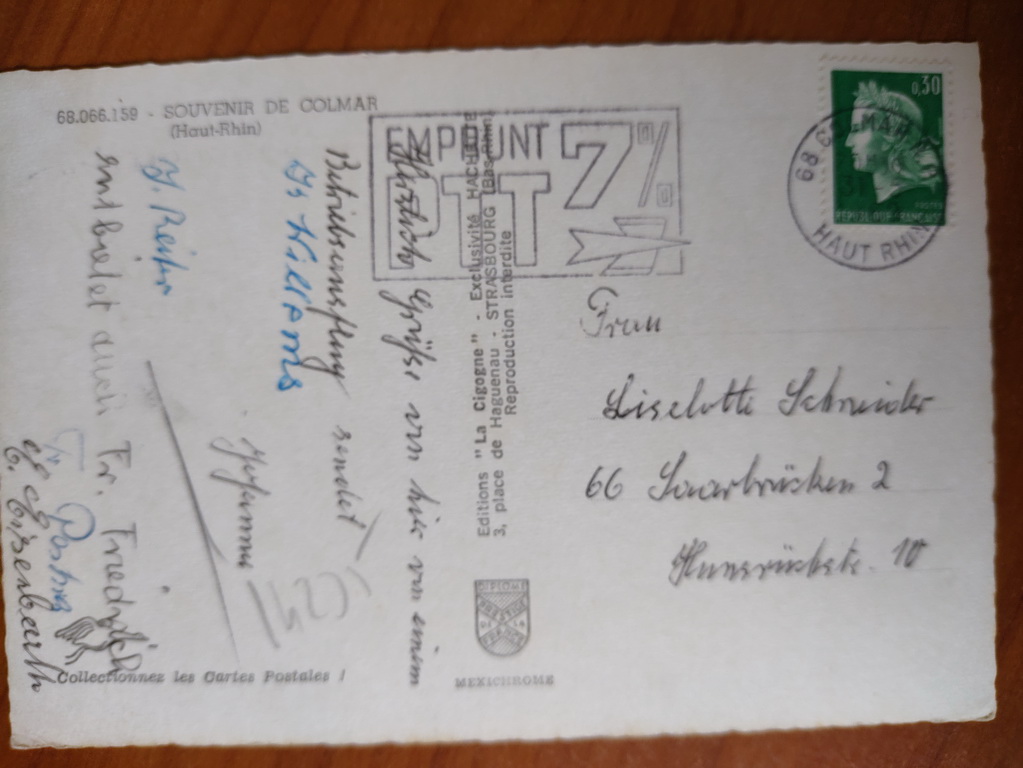 68.066.159 - SOUVENIR DE COLMAR
(Haut-Rhin)
EMPRUNT
PTT
7%
0,30
POSTES
REPUBLIQUE FRANÇAISE
68 COLMAR
HAUT RHIN
Herzliche Grüße von hier von einem
Betriebsausflug sendet
J. Reiter
und Bolet auch Fr. Friedrich
Fr.
E. Eisenbarth
Frau
Liselotte Schneider
66 Saarbrücken 2
Hunsrückstr. 10
Editions "La Cigogne" - Exclusivité HACHETTE
3, place de Haguenau - STRASBOURG (Bas-Rhin)
Reproduction interdite
MEXICHROME
Collectionnez les Cartes Postales !